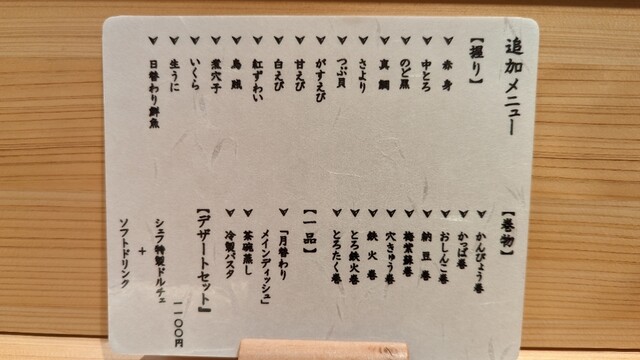 追加メニュー
【握り】
赤身
中とろ
のど黒
真鯛
さより
つぶ貝
がすえび
甘えび
白えび
紅ずわい
鳥賊
煮穴子
いくら
生うに
日替わり鮮魚
【巻物】
かんぴょう巻
かっぱ巻
おしんこ巻
納豆巻
梅紫蘇巻
穴きゅう巻
鉄火巻
とろ鉄火巻
とろたく巻
【一品】
「月替わり
メインディッシュ」
茶碗蒸し
冷製パスタ
【デザートセット】
一一〇〇円
シェフ特製ドルチェ
+
ソフトドリンク